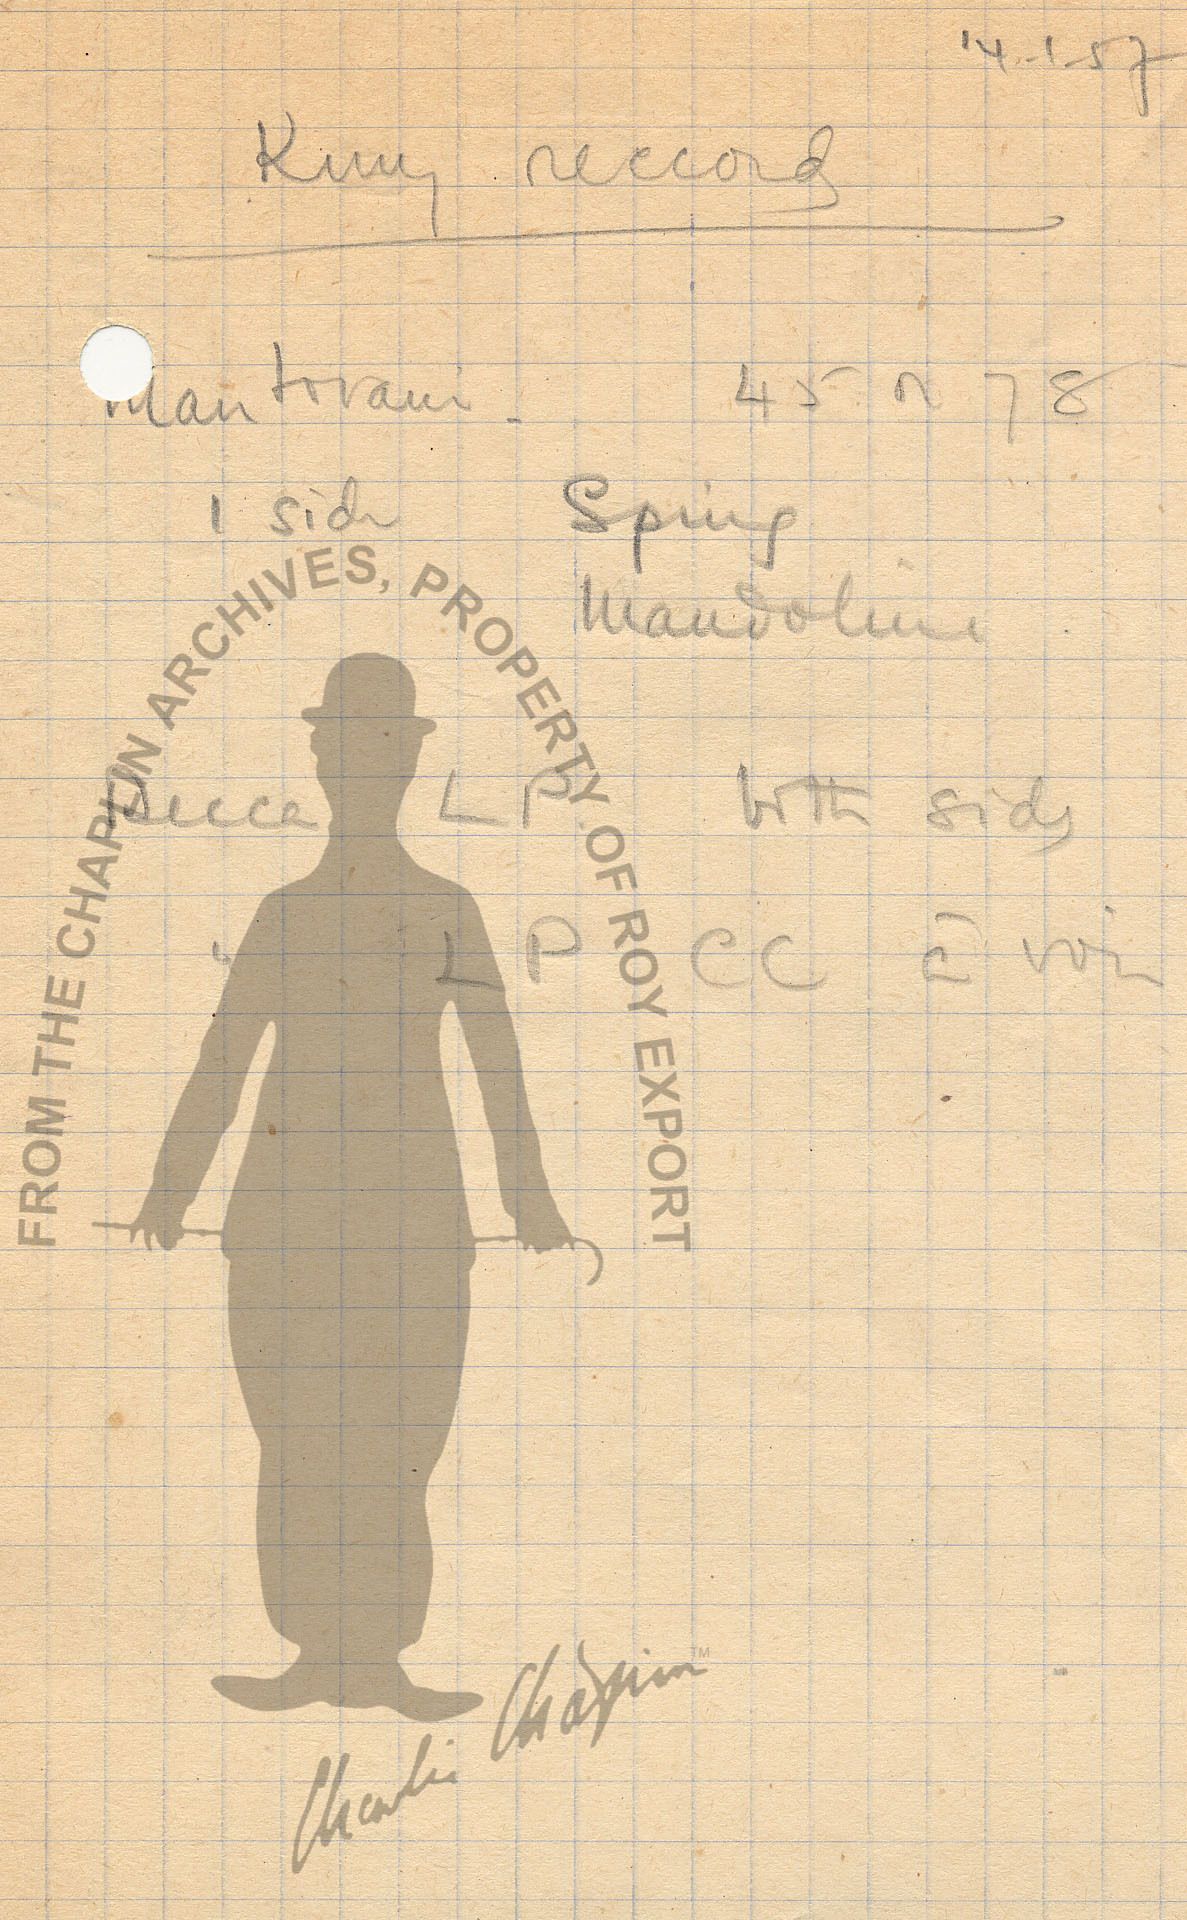 14.1.57
King reccord
Mantovani - 45 or 78
1 side Spring
Mandoline
Decca LP both sides
" LP CC à voir
FROM THE CHAPLIN ARCHIVES, PROPERTY OF ROY EXPORT
Charlie Chaplin TM